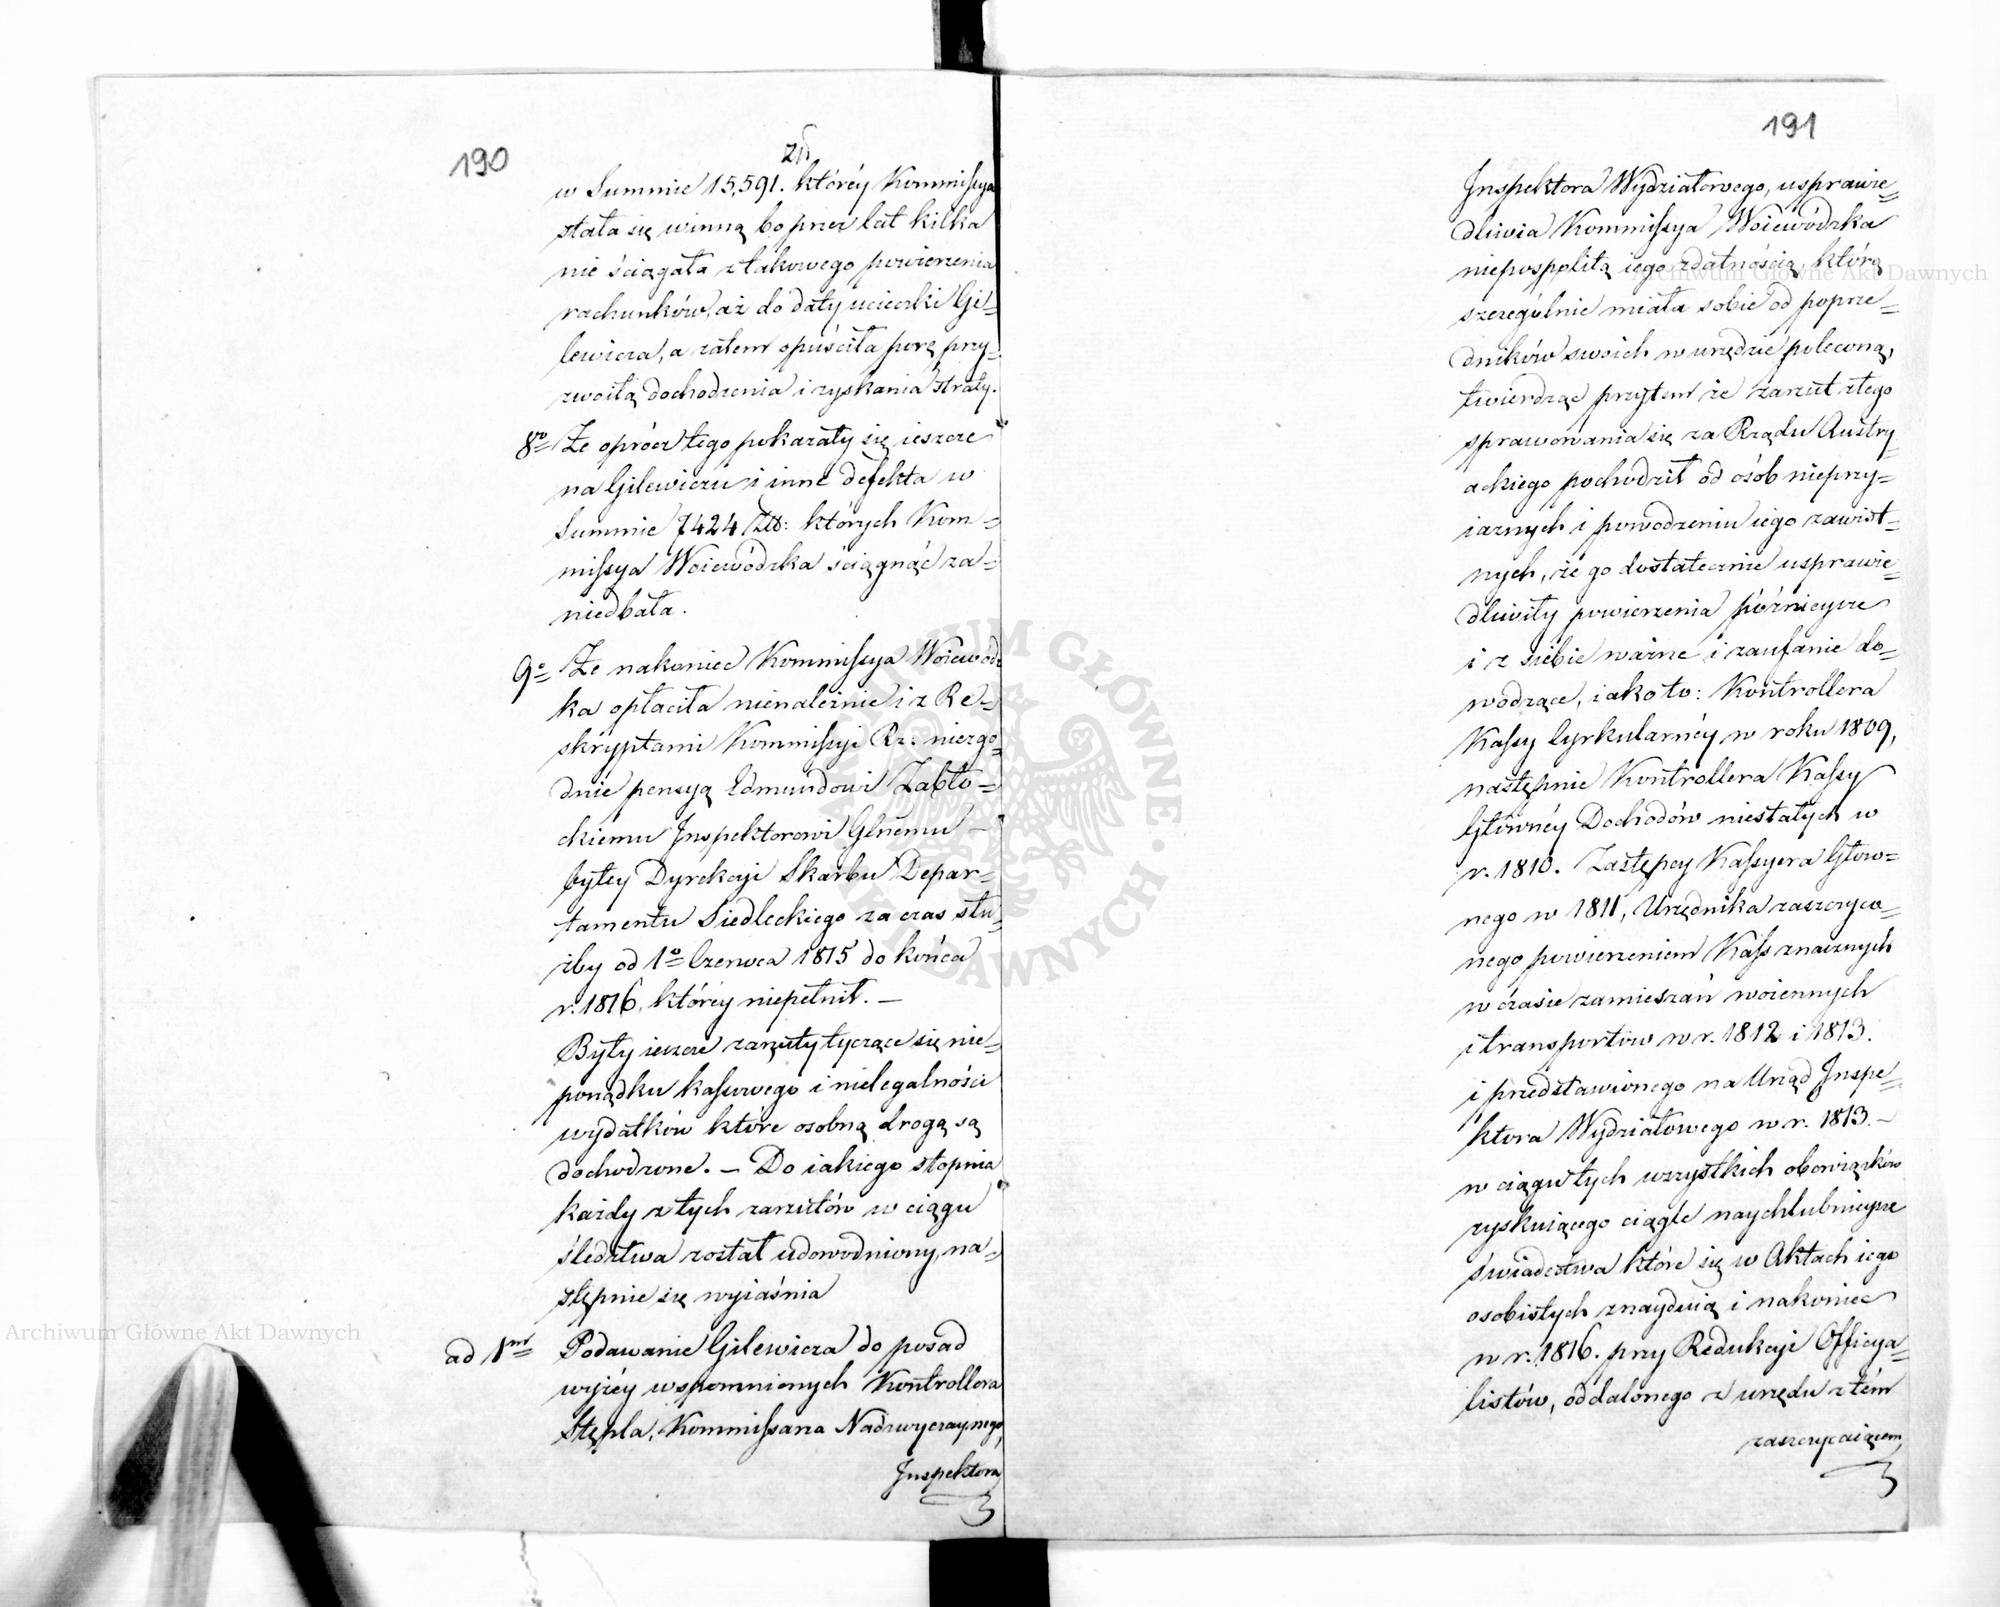 190
zł
w Summie 15,591. któréy Kommissya
stała się winną bo przez lat kilka
nie ściągała z takowego powierzenia
rachunków, aż do daty ucieczki Gi=
lewicza, a zatem opuściła porę przy=
zwoitą dochodzenia i zyskania straty.
8vo Że oprócz tego pokazały się ieszcze
na Gilewiczu i inne defekta w
Summie 7424 Złł: których Kom=
missya Woiewódzka ściągnąć za=
niedbała.
9o Że nakoniec Kommissya Woiewódz
ka opłaciła nienależnie i z Re=
skryptami Kommissyi Rz: niezgo=
dnie pensyą Edmundowi Zabło=
ckiemu Inspektorowi Głnemu –
byłey Dyrekcyi Skarbu Depar=
tamentu Siedleckiego za czas słu=
żby od 1o Czerwca 1815 do końca
r. 1816, któréy niepełnił. –
Były ieszcze zarzuty tyczące się nie=
porządku kassowego i nielegalności
wydatków które osobną drogą są
dochodzone. – Do iakiego stopnia
każdy z tych zarzutów w ciągu
śledztwa został udowodniony, na=
stępnie się wyiaśnia
ad 1m Podawanie Gilewicza do posad
wyżéy wspomnionych Kontrollera
Stępla, Kommissarza Nadzwyczaynego,
Inspektora
191
Inspektora Wydziałowego, usprawie=
dliwia Kommissya Woiewódzka
niepospolitą iego zdatnością którą
szczególnie miała sobie od poprze=
dników swoich w urzędzie poleconą,
twierdząc przytem że zarzut złego
sprawowania się za Rządu Austry
ackiego pochodził od osób nieprzy=
iaznych i powodzeniu iego zawist=
nych, że go dostatecznie usprawie=
dliwiły powierzenia późnieysze
i z siebie ważne i zaufanie do=
wodzące, iako to: Kontrollera
Kassy Cyrkularnéy w roku 1809,
następnie Kontrollera Kassy
Głównéy Dochodów niestałych w
r. 1810. Zastępcy Kassyera Głow=
nego w 1811, Urzędnika zaszczyco=
nego powierzeniem Kass znacznych
w czasie zamieszań woiennych
i transportów w r. 1812 i 1813.
i przedstawionego na Urząd Inspe=
ktora Wydziałowego w r. 1813. –
w ciągu tych wszystkich obowiązków
zyskuiącego ciągle naychlubnieysze
świadectwa które się w Aktach iego
osobistych znayduią i nakoniec
w r. 1816. przy Redukcyi Officya=
listów, oddalonego z urzędu z tém
zaszczycaiącem
Archiwum Główne Akt Dawnych
Archiwum Główne Akt Dawnych
ARCHIWUM GŁÓWNE AKT DAWNYCH